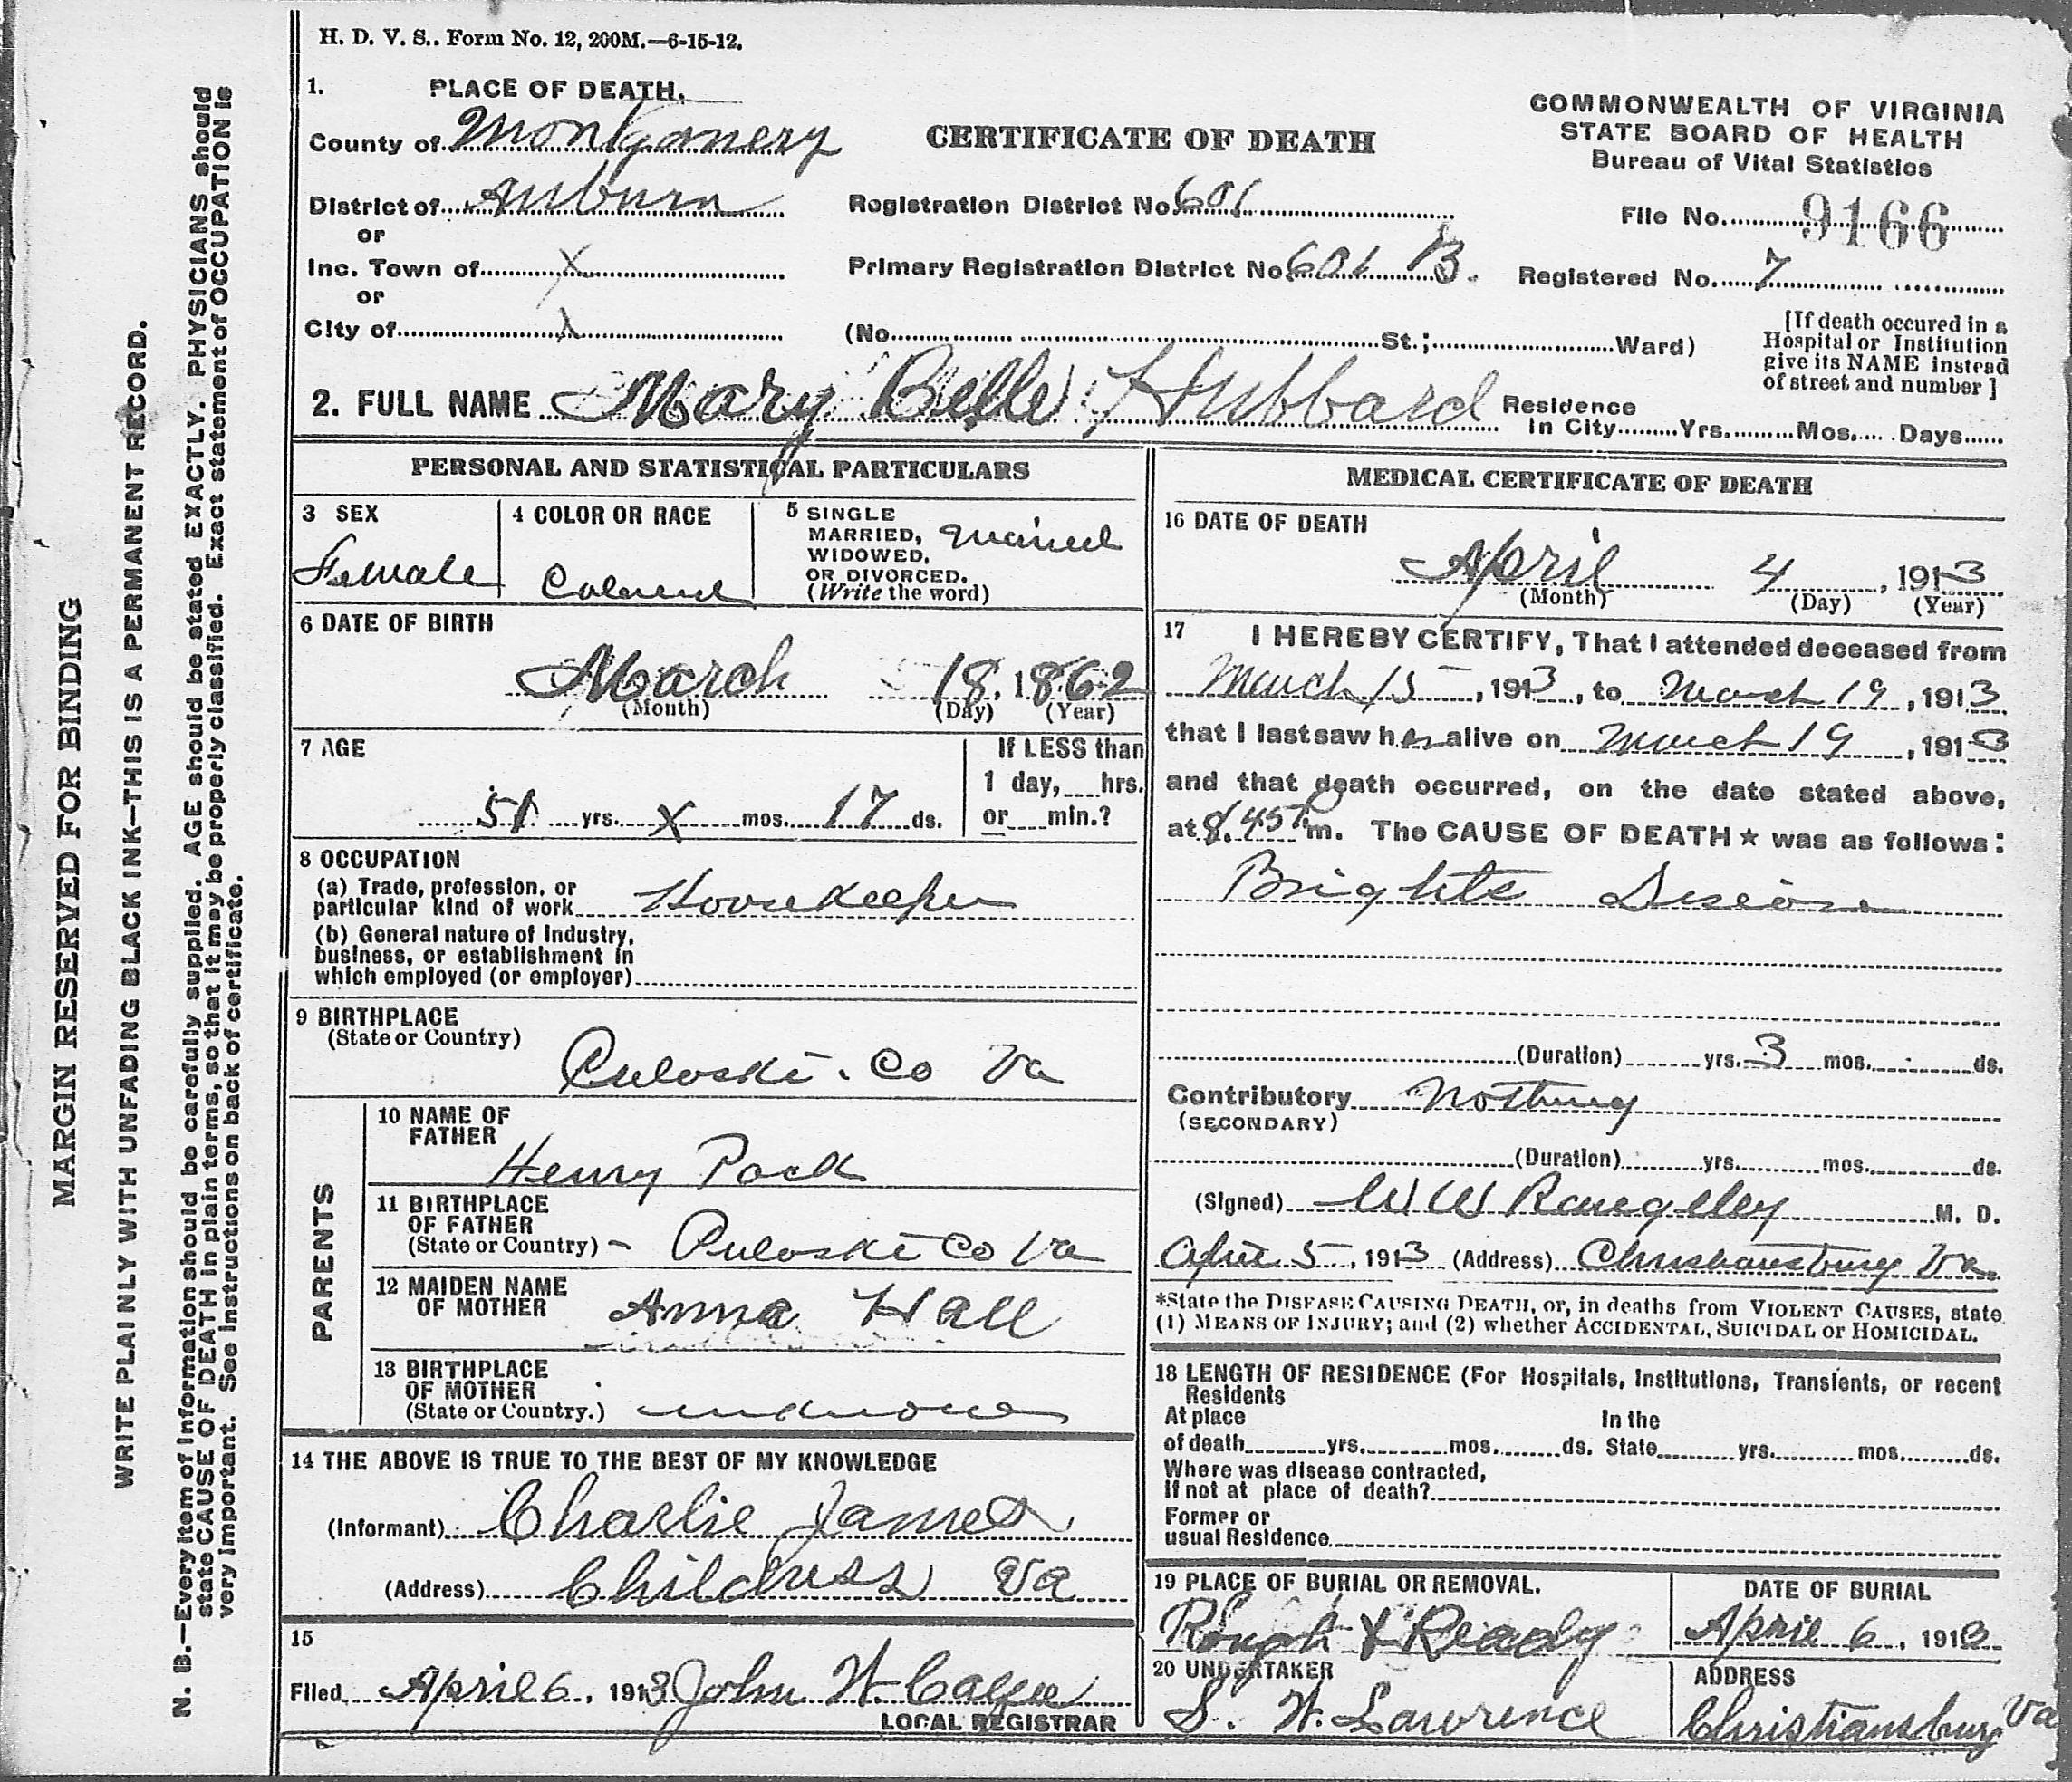 H. D. V. S.. Form No. 12, 200M.—6-15-12.
1. PLACE OF DEATH.
County of Montgomery
District of Auburn
or
Inc. Town of X
or
City of X
CERTIFICATE OF DEATH
Registration District No. 601
Primary Registration District No. 601 B.
(No. St.; Ward)
COMMONWEALTH OF VIRGINIA
STATE BOARD OF HEALTH
Bureau of Vital Statistics
File No. 9166
Registered No. 7
[If death occured in a
Hospital or Institution
give its NAME instead
of street and number]
2. FULL NAME Mary Belle Hubbard
Residence
In City Yrs. Mos. Days
PERSONAL AND STATISTICAL PARTICULARS
3 SEX
Female
4 COLOR OR RACE
Colored
5 SINGLE
MARRIED,
WIDOWED,
OR DIVORCED.
(Write the word)
Married
6 DATE OF BIRTH
March 18, 1862
(Month) (Day) (Year)
7 AGE
51 yrs. X mos. 17 ds.
If LESS than
1 day, hrs.
or min.?
8 OCCUPATION
(a) Trade, profession, or
particular kind of work Housekeeper
(b) General nature of Industry,
business, or establishment in
which employed (or employer)
9 BIRTHPLACE
(State or Country)
Puloski. Co Va
PARENTS
10 NAME OF
FATHER
Henry
11 BIRTHPLACE
OF FATHER
(State or Country) - Puloski Co Va
12 MAIDEN NAME
OF MOTHER
Anna Hall
13 BIRTHPLACE
OF MOTHER
(State or Country.) unknown
14 THE ABOVE IS TRUE TO THE BEST OF MY KNOWLEDGE
(Informant) Charlie James
(Address) Childress Va
15
Filed April 6, 1913 John H.
LOCAL REGISTRAR
MEDICAL CERTIFICATE OF DEATH
16 DATE OF DEATH
April 4, 1913
(Month) (Day) (Year)
17 I HEREBY CERTIFY, That I attended deceased from
March 15, 1913, to March 19, 1913
that I last saw her alive on March 19, 1913
and that death occurred, on the date stated above,
at 8.45 P m. The CAUSE OF DEATH★ was as follows:
Brights Disease
(Duration) yrs. 3 mos. ds.
Contributory Nothing
(SECONDARY)
(Duration) yrs. mos. ds.
(Signed) W W Rangelley M. D.
April 5, 1913 (Address) Christiansburg Va
*State the DISEASE CAUSING DEATH, or, in deaths from VIOLENT CAUSES, state
(1) MEANS OF INJURY; and (2) whether ACCIDENTAL, SUICIDAL or HOMICIDAL.
18 LENGTH OF RESIDENCE (For Hospitals, Institutions, Transients, or recent
Residents
At place
of death yrs. mos. ds.
In the
State yrs. mos. ds.
Where was disease contracted,
If not at place of death?
Former or
usual Residence
19 PLACE OF BURIAL OR REMOVAL.
Rough & Ready
DATE OF BURIAL
April 6, 1913
20 UNDERTAKER
S. H. Lawrence
ADDRESS
Christiansburg Va
MARGIN RESERVED FOR BINDING
WRITE PLAINLY WITH UNFADING BLACK INK—THIS IS A PERMANENT RECORD.
N. B.—Every item of information should be carefully supplied. AGE should be stated EXACTLY. PHYSICIANS should
state CAUSE OF DEATH in plain terms, so that it may be properly classified. Exact statement of OCCUPATION is
very important. See instructions on back of certificate.